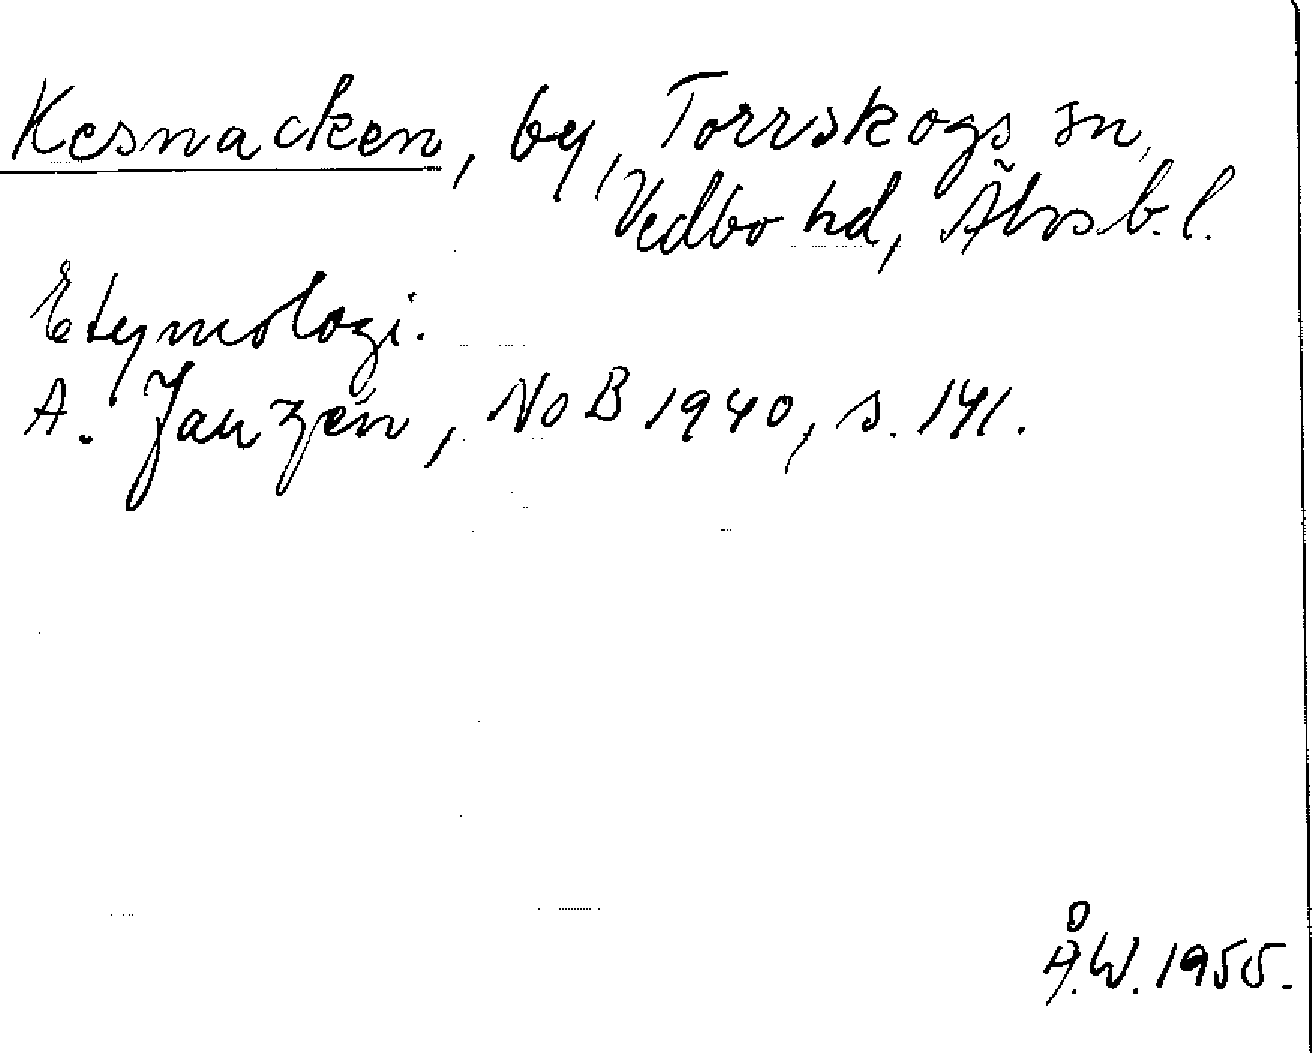 Kesnacken, by, Torrskogs sn,
Vedbo hd, Älvsb. l.
Etymologi.
A. Janzén, NoB 1940, s. 141.
Å.W. 1955.